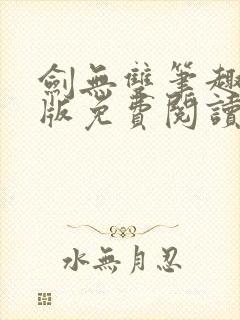 劍無雙筆趣
版免費閱讀
水無月忍